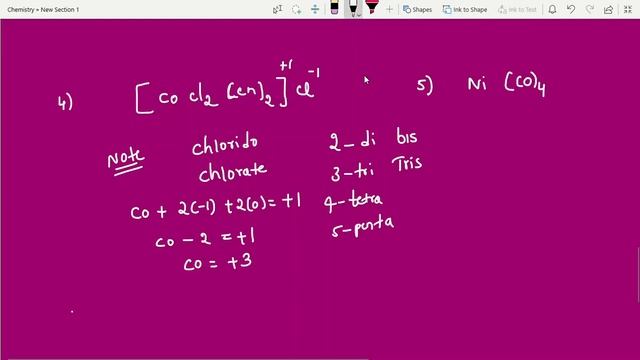 Chemistry » New Section 1
Shapes
Ink to Shape
Ink to Text
4) [Co Cl2 (en)2]+1 Cl-1
5) Ni (CO)4
Note
chlorido
chlorate
2 - di bis
3 - tri Tris
4 - tetra
5 - penta
Co + 2(-1) + 2(0) = +1
Co - 2 = +1
Co = +3